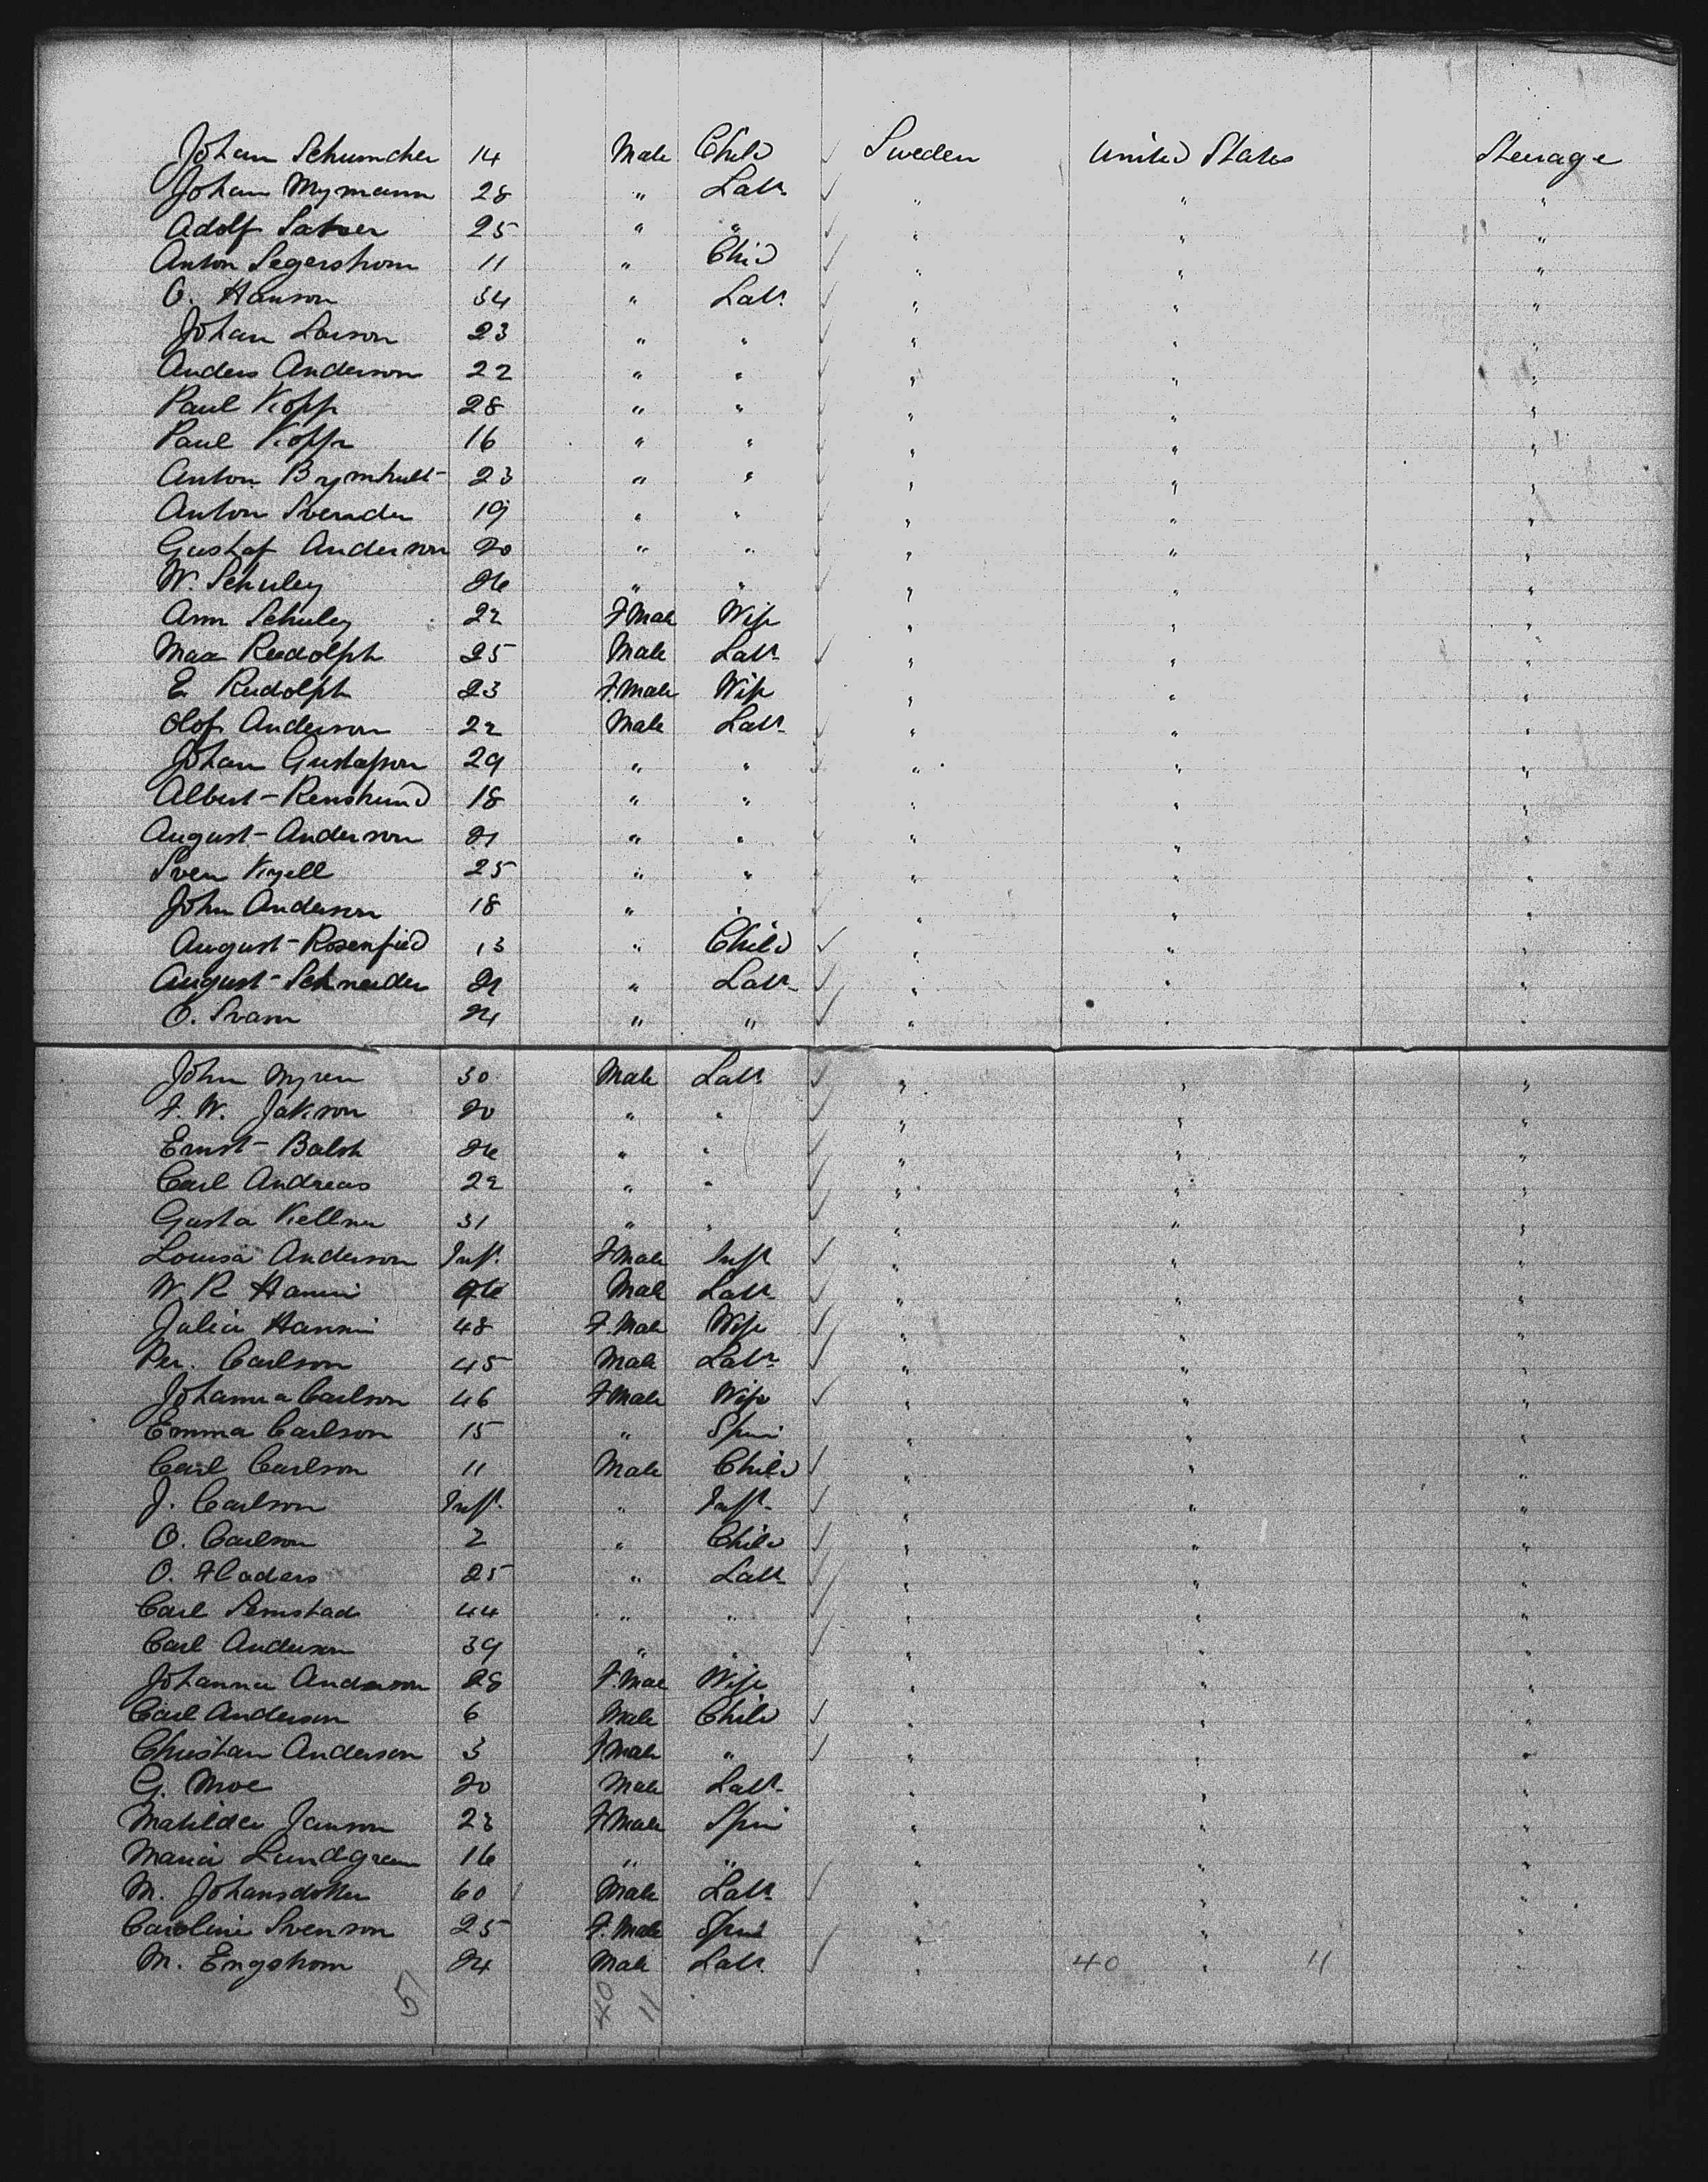 Johan Schumcher 14 Male Child ✓ Sweden United States Steerage
Johan Mymann 28 " Labr ✓ " " "
Adolf 25 " " ✓ " " "
Anton Segerstrom 11 " Chid ✓ " " "
O. Hanson 34 " Labr ✓ " " "
Johan Larson 23 " " ✓ " " "
Anders Anderson 22 " " ✓ " " "
Paul Kopp 28 " " ✓ " " "
Paul Kopp 16 " " ✓ " " "
Anton 23 " " ✓ " " "
Anton 19 " " ✓ " " "
Gustaf Anderson 20 " " ✓ " " "
W. Schuley 26 " " ✓ " " "
Ann Schuley 22 F Male Wife " " "
Max Rudolph 25 Male Labr ✓ " " "
E Rudolph 23 F. Male Wife " " "
Olof Anderson 22 Male Labr ✓ " " "
Johan Gustafson 29 " " ✓ " " "
Albert 18 " " ✓ " " "
August Anderson 21 " " ✓ " " "
Sven Kyell 25 " " ✓ " " "
John Anderson 18 " " ✓ " " "
August Rosenfied 13 " Child ✓ " " "
August Schneider 21 " Labr ✓ " " "
O. Svam 24 " " ✓ " " "
John Myren 30 Male Labr ✓ " " "
F. W. Jakson 20 " " ✓ " " "
Ernst Balsh 26 " " ✓ " " "
Carl Andreas 22 " " ✓ " " "
Gusta Kellner 31 " " ✓ " " "
Louisa Anderson Inft. F Male Inft ✓ " " "
W R Hanni Male Labr ✓ " " "
Julia Hanni 48 F. Male Wife ✓ " " "
Per. Carlson 45 Male Labr ✓ " " "
Johanna Carlson 46 F Male Wife ✓ " " "
Emma Carlson 15 " Spin " " "
Carl Carlson 11 Male Child ✓ " " "
J. Carlson Inft. " Inft. ✓ " " "
O. Carlson 2 " Child ✓ " " "
O. Fladers 25 " Labr ✓ " " "
Carl Semstad 44 " " ✓ " " "
Carl Anderson 39 " " ✓ " " "
Johanna Anderson 28 F. Male Wife " " "
Carl Anderson 6 Male Child ✓ " " "
Christian Anderson 3 F Male " ✓ " " "
G. Moe 20 Male Labr " " "
Matilda Janson 23 F Male Spin " " "
Maria Lundgren 16 " " " " "
M. Johansdotter 60 Male Labr ✓ " " "
Caroline Svenson 25 F. Male Spin " " "
M. Engstrom 24 Male Labr. ✓ " 40 " 11 "
51 40 11